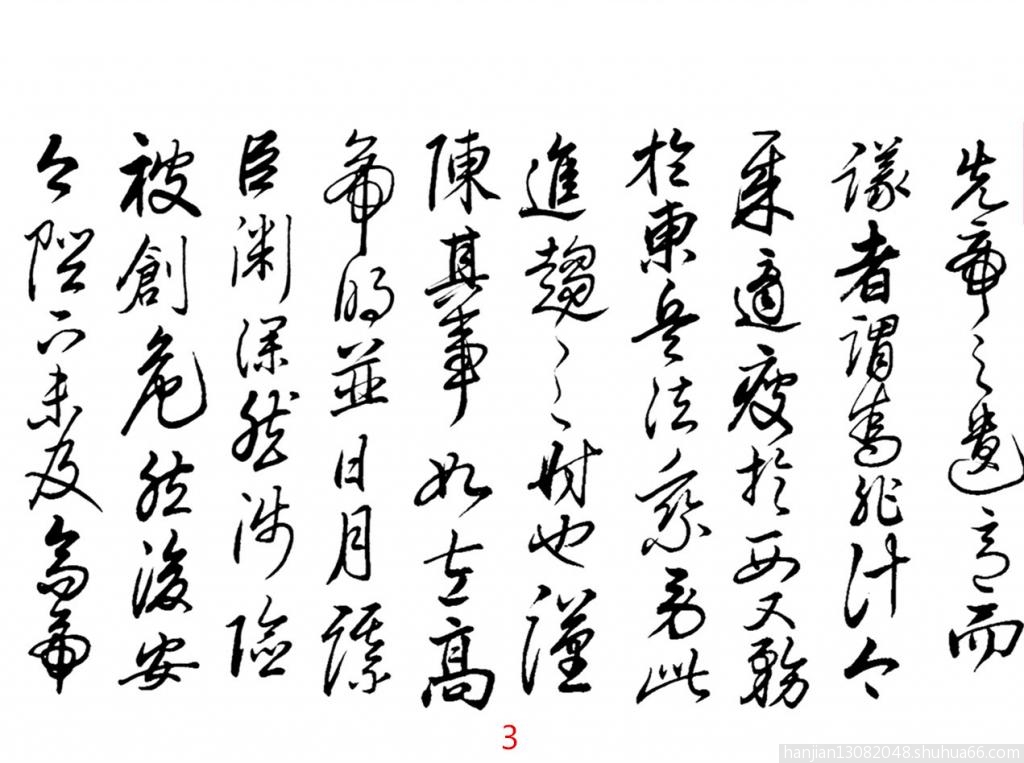 先帝之遗意而
議者謂為非計今
賊適疲於西又務
於東兵法乘勞此
進趨之時也謹
陳其事如左高
帝明並日月謀
臣淵深然涉險
被創危然後安
今陛下未及高帝
3
hanjian13082048.shuhua66.com